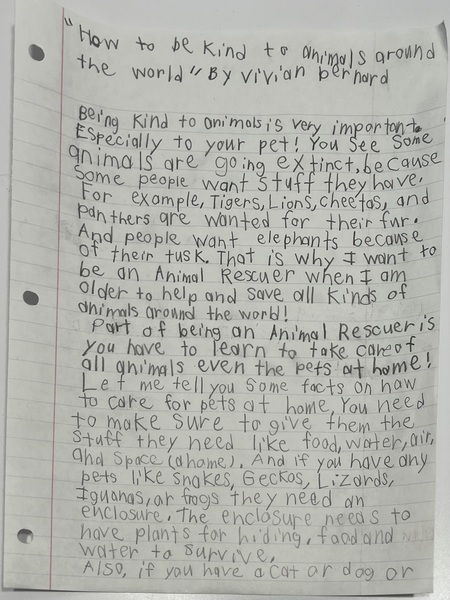 "How to be kind to animals around
the world" By vivian bernard
Being kind to animals is very important.
Especially to your pet! You See Some
animals are going extinct, because
Some people want stuff they have.
For example, Tigers, Lions, cheetas, and
panthers are wanted for their fur.
And people want elephants because
of their tusk. That is why I want to
be an Animal Rescuer when I am
older to help and save all kinds of
animals around the world!
Part of being an Animal Rescuer is
you have to learn to take care of
all animals even the pets at home!
Let me tell you some facts on how
to care for pets at home. You need
to make sure to give them the
stuff they need like food, water, air,
and space (a home). And if you have any
pets like snakes, Geckos, Lizards,
Iguanas, or frogs they need an
enclosure. The enclosure needs to
have plants for hiding, food and
water to survive.
Also, if you have a cat or dog or